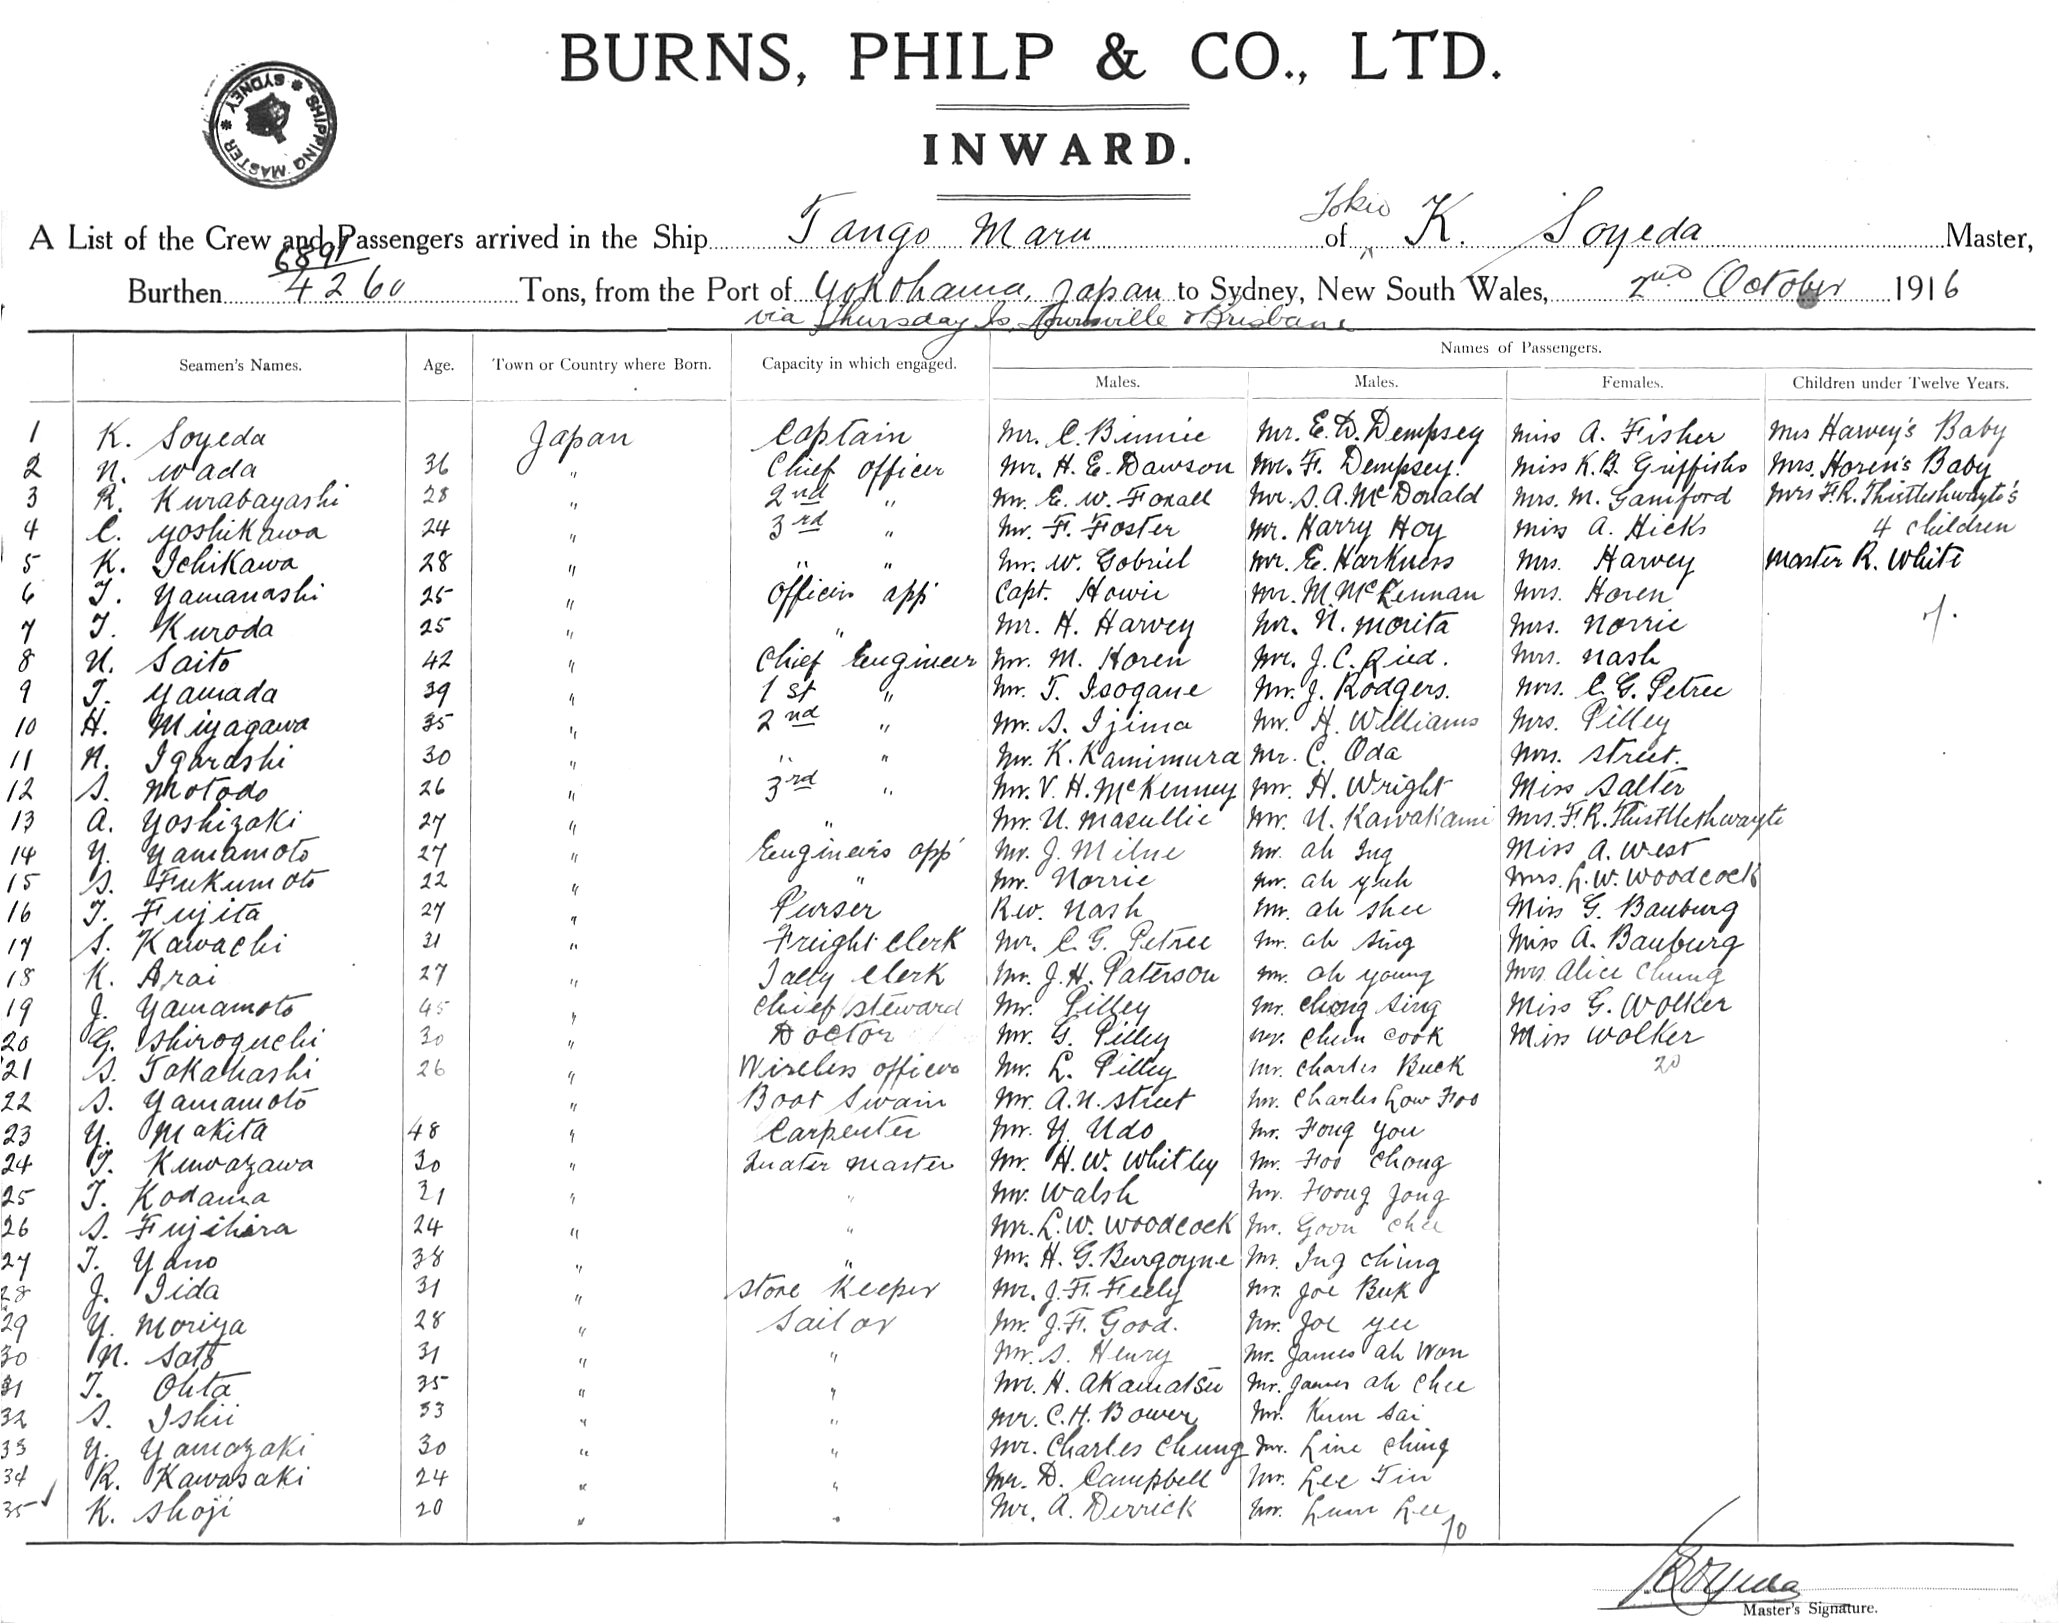 BURNS, PHILP & CO., LTD.
SHIPPING MASTER * SYDNEY *
INWARD.
Tokio
A List of the Crew and Passengers arrived in the Ship Tango Maru of K. Soyeda Master,
6891
Burthen 4260 Tons, from the Port of Yokohama, Japan to Sydney, New South Wales, 2nd October 1916
via Thursday Is, Townsville & Brisbane
Names of Passengers.
Seamen's Names. Age. Town or Country where Born. Capacity in which engaged. Males. Males. Females. Children under Twelve Years.
1 K. Soyeda Japan Captain Mr. C. Binnie Mr. E. D. Dempsey Miss A. Fisher Mrs Harvey's Baby
2 N. Wada 36 " Chief Officer Mr. H. E. Dawson Mr. F. Dempsey. Miss K. B. Griffiths Mrs. Horen's Baby
3 R. Kurabayashi 28 " 2nd " Mr. E. W. Foxall Mr. S. A. McDonald Mrs. M. Gamford Mrs F. R. Thistleshwayte's
4 C. Yoshikawa 24 " 3rd " Mr. F. Foster Mr. Harry Hoy Miss A. Hicks 4 children
5 K. Ichikawa 28 " " " Mr. W. Gobriel Mr. E. Harkness Mrs. Harvey Master R. White
6 T. Yamanashi 25 " Officers app Capt. Howie Mr. M. McLennan Mrs. Horen
7 T. Kuroda 25 " " Mr. H. Harvey Mr. N. Morita Mrs. Norrie 7.
8 U. Saito 42 " Chief Engineer Mr. M. Horen Mr. J. C. Ried. Mrs. Nash
9 T. Yamada 39 " 1st " Mr. T. Isogane Mr. J. Rodgers. Mrs. C. G. Petree
10 H. Miyagawa 35 " 2nd " Mr. S. Ijima Mr. H. Williams Mrs. Pilley
11 N. Igarashi 30 " " " Mr. K. Kamimura Mr. C. Oda Mrs. Street.
12 S. Motodo 26 " 3rd " Mr. V. H. McKenney Mr. H. Wright Miss Salter
13 A. Yoshizaki 27 " " Mr. U. Masullie Mr. U. Kawakami Mrs. F. R. Thistleshwayte
14 Y. Yamamoto 27 " Engineers app Mr. J. Milne Mr. Ah Ing Miss A. West
15 S. Fukumoto 22 " " Mr. Norrie Mr. Ah Yuh Mrs. L. W. Woodcock
16 T. Fujita 27 " Purser Rev. Nash Mr. Ah Shee Miss G. Bauburg
17 S. Kawachi 31 " Freight Clerk Mr. C. G. Petree Mr. Ah Sing Miss A. Bauburg
18 K. Arai 27 " Tally Clerk Mr. J. H. Paterson Mr. Ah Young Mrs Alice Chung
19 J. Yamamoto 45 " Chief Steward Mr. Pilley Mr. Chong Sing Miss G. Wolker
20 G. Shiroguchi 30 " Doctor Mr. G. Pilley Mr. Chun Cook Miss Wolker
21 S. Takahashi 26 " Wireless officer Mr. L. Pilley Mr. Charles Buck 20
22 S. Yamamoto " Boat Swain Mr. A. N. Street Mr. Charles Low Foo
23 Y. Makita 48 " Carpenter Mr. Y. Udo Mr. Fong You
24 T. Kuwazawa 30 " Quater master Mr. H. W. Whitley Mr. Foo Chong
25 T. Kodama 31 " " Mr. Walsh Mr. Foong Jong
26 S. Fujihira 24 " " Mr. L. W. Woodcock Mr. Goon Chee
27 T. Yano 38 " " Mr. H. G. Burgoyne Mr. Ing Ching
28 J. Iida 31 " Store Keeper Mr. J. F. Feely Mr. Joe Buk
29 Y. Moriya 28 " Sailor Mr. J. F. Good. Mr. Joe Yee
30 N. Sato 31 " " Mr. S. Henry Mr. James Ah Won
31 T. Ohta 35 " " Mr. H. Akamatsu Mr. James Ah Chee
32 S. Ishii 33 " " Mr. C. H. Bower Mr. Kum Sai
33 Y. Yamazaki 30 " " Mr. Charles Chung Mr. Line Ching
34 R. Kawasaki 24 " " Mr. D. Campbell Mr. Lee Tin
35 K. Shoji 20 " " Mr. A. Derrick Mr. Lum Lee
70
K Soyeda
Master's Signature.